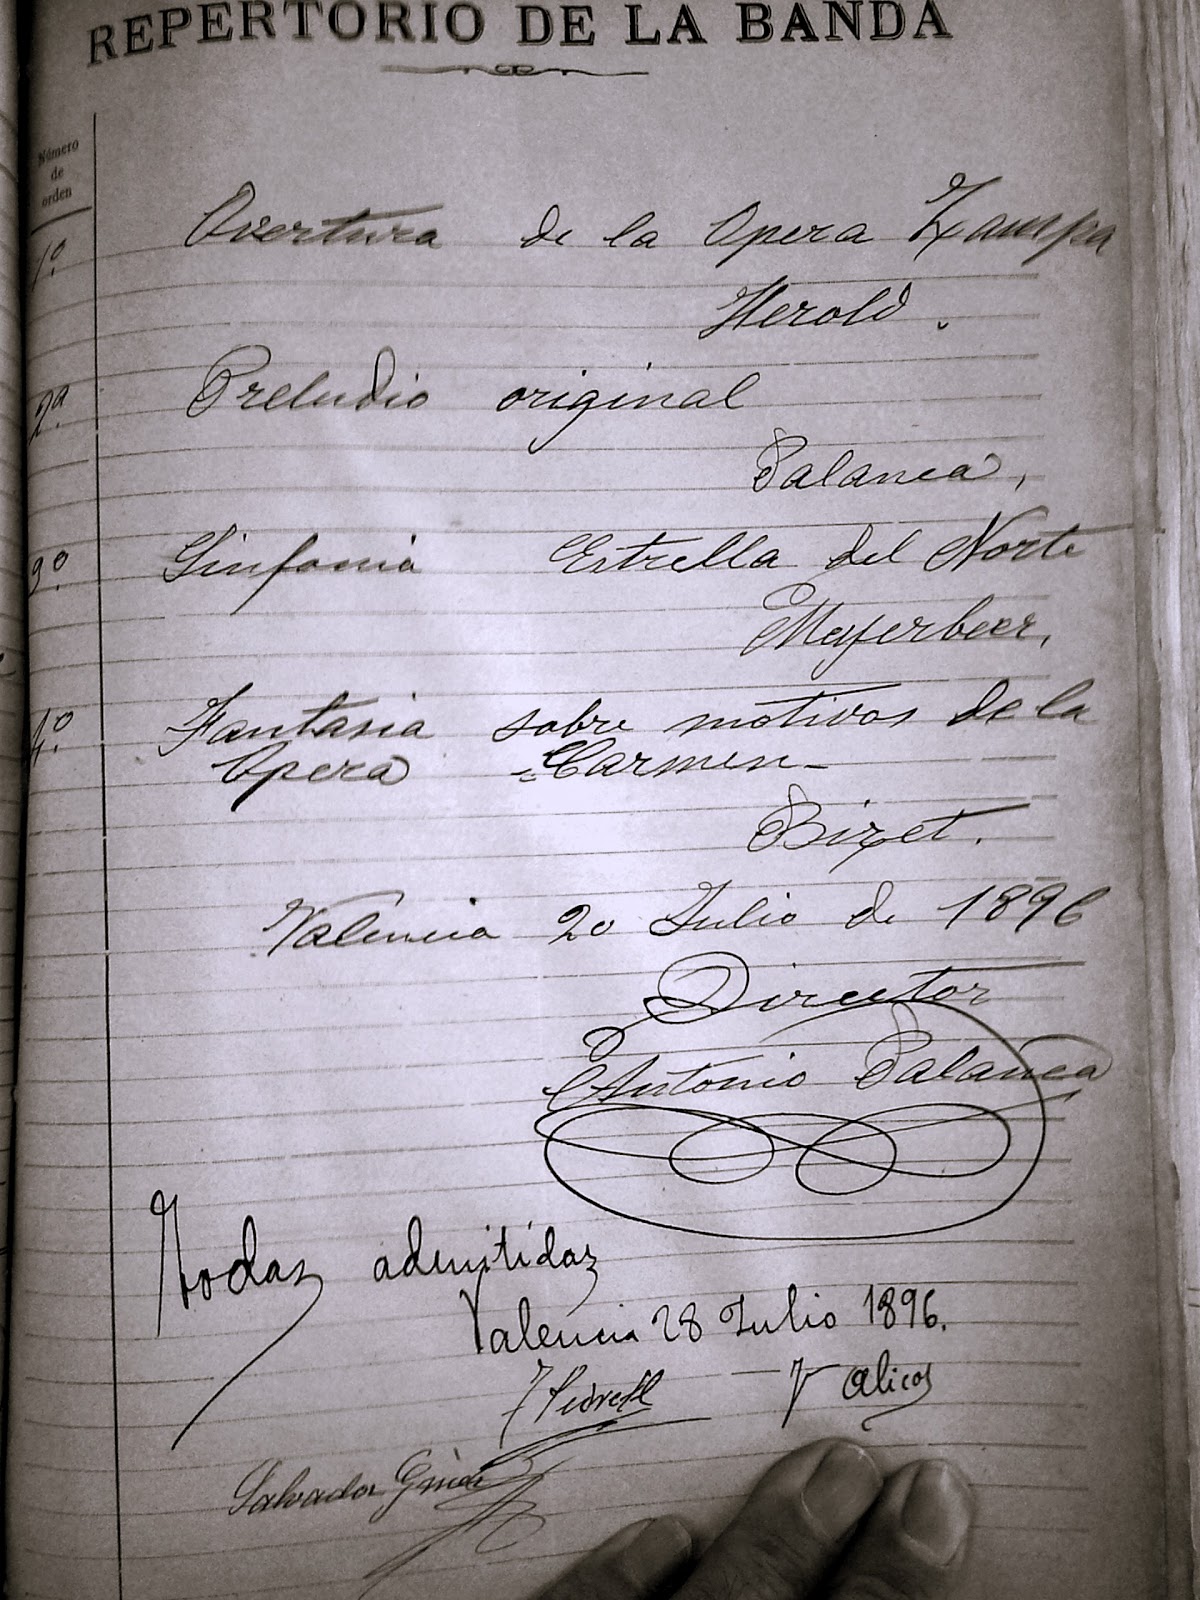 REPERTORIO DE LA BANDA
Número
de
orden
1º Overtura de la Opera Zampa
Herold.
2ª Preludio original
Palanca,
3º Sinfonia Estrella del Norte
Mayerbeer,
4º Fantasia sobre motivos de la
Opera "Carmen"
Bizet.
Valencia 20 Julio de 1896
Director
Antonio Palanca
Todas admitidas
Valencia 28 Julio 1896.
F Pedrell
Salvador Giner